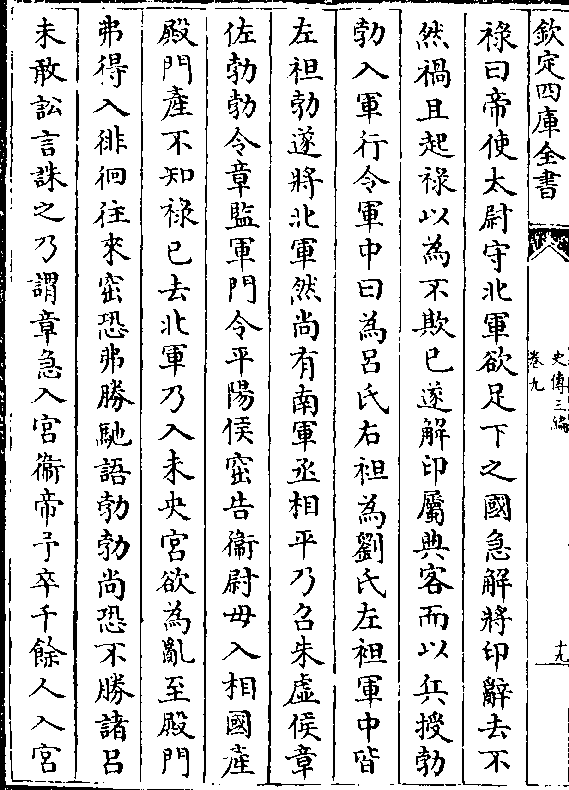 欽定四庫全書
史傳三編
卷九
十九
祿曰帝使太尉守北軍欲足下之國急解將印辭去不
然禍且起祿以為不欺已遂解印屬典客而以兵授勃
勃入軍行令軍中曰為呂氏右袒為劉氏左袒軍中皆
左袒勃遂將北軍然尚有南軍丞相平乃召朱虛侯章
佐勃勃令章監軍門令平陽侯窋告衞尉毋入相國產
殿門產不知祿已去北軍乃入未央宮欲為亂至殿門
弗得入徘徊往來窋恐弗勝馳語勃勃尚恐不勝諸呂
未敢訟言誅之乃謂章急入宮衞帝予卒千餘人入宮